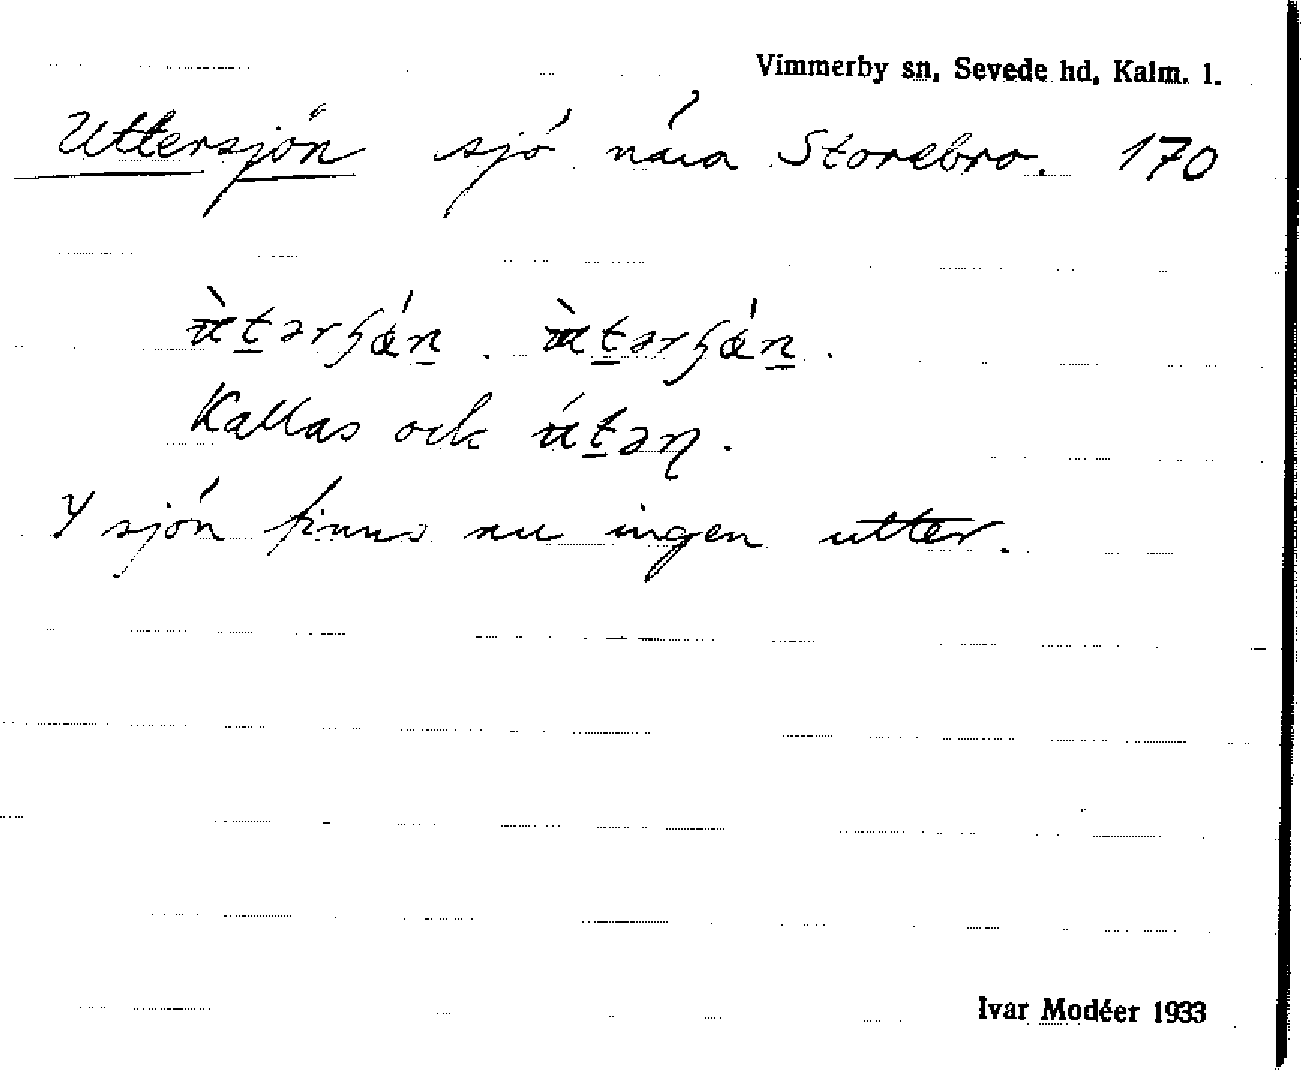 Vimmerby sn, Sevede hd, Kalm. l.
Uttersjön sjö nära Storebro. 170
Kallas ock
I sjön finns nu ingen utter.
Ivar Modéer 1933